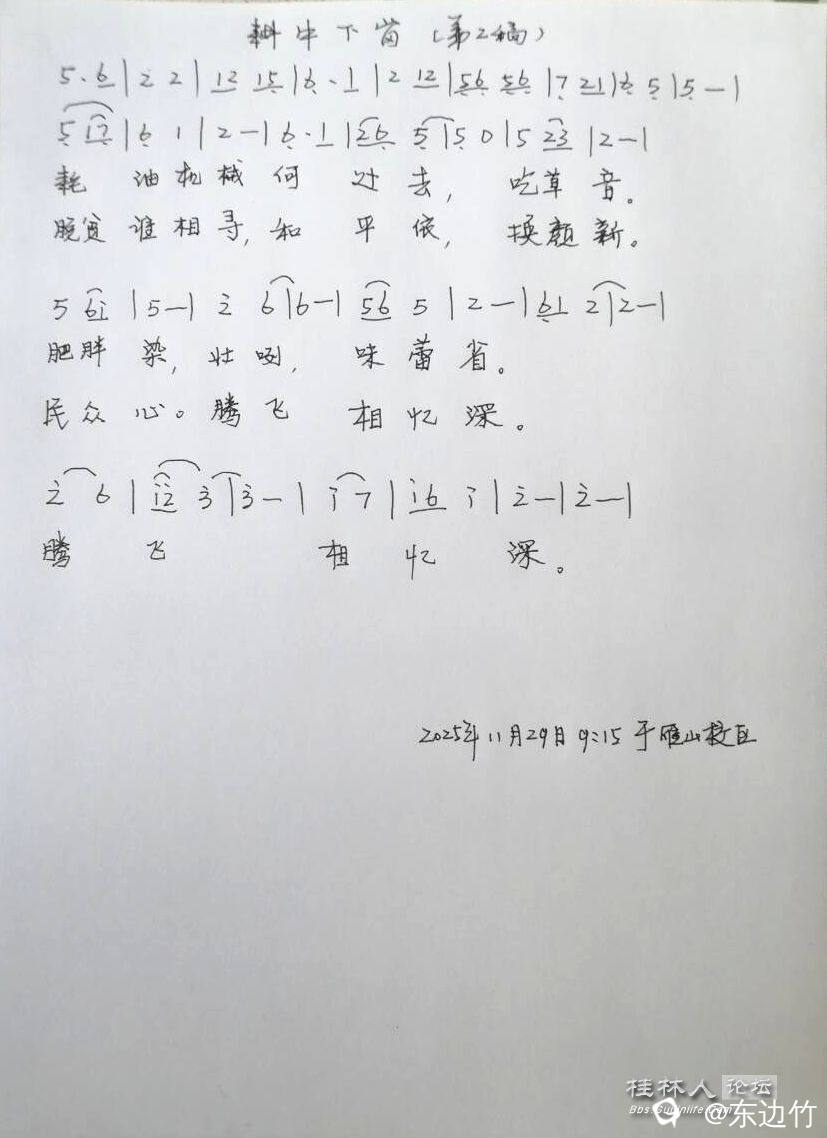 耕牛下岗（第2稿）
5·6|2 2|12 15|6·1|2 12|56 56|7 21|6 5|5—|
5 17|6 1|2—|6·1|26 5|5 0|5 23|2—|
耗油机械何过去，吃草音。
脱贫谁相寻，和平依，换颜新。
5 6i|5—|2 6|6—|56 5|2—|61 2|2—|
肥胖染，壮咧，味蕾省。
民众心。腾飞相忆深。
2 6|i2 3|3—|i 7|i6 i|2—|2—|
腾飞相忆深。
2025年11月29日9:15于雁山校区
桂林人论坛
Bbs.Guilinlife.Com
@东边竹